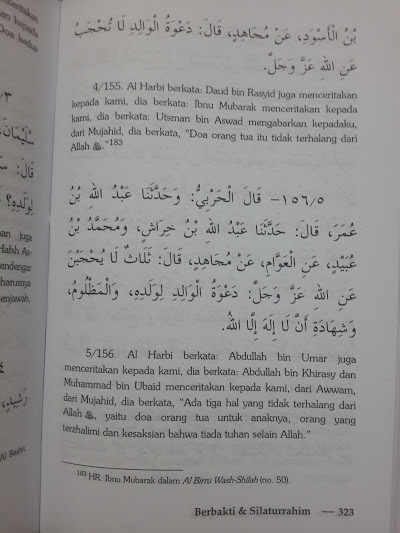 بْنُ الْأَسْوَدِ، عَنْ مُجَاهِدٍ، قَالَ: دَعْوَةُ الْوَالِدِ لَا تُحْجَبُ
عَنِ اللهِ عَزَّ وَجَلَّ.
4/155. Al Harbi berkata: Daud bin Rasyid juga menceritakan
kepada kami, dia berkata: Ibnu Mubarak menceritakan kepada
kami, dia berkata: Utsman bin Aswad mengabarkan kepadaku,
dari Mujahid, dia berkata, "Doa orang tua itu tidak terhalang dari
Allah ﷻ."183
١٥٦/٥- قَالَ الْحَرْبِيُّ: وَحَدَّثَنَا عَبْدُ اللهِ بْنُ
عُمَرَ، قَالَ: حَدَّثَنَا عَبْدُ اللهِ بْنُ خِرَاشٍ، وَمُحَمَّدُ بْنُ
عُبَيْدٍ، عَنِ الْعَوَّامِ، عَنْ مُجَاهِدٍ، قَالَ: ثَلَاثٌ لَا يُحْجَبْنَ
عَنِ اللهِ عَزَّ وَجَلَّ: دَعْوَةُ الْوَالِدِ لِوَلَدِهِ، وَالْمَظْلُومُ،
وَشِهَادَةِ أَنْ لَا إِلَهَ إِلَّا اللهُ.
5/156. Al Harbi berkata: Abdullah bin Umar juga
menceritakan kepada kami, dia berkata: Abdullah bin Khirasy dan
Muhammad bin Ubaid menceritakan kepada kami, dari Awwam,
dari Mujahid, dia berkata, "Ada tiga hal yang tidak terhalang dari
Allah ﷻ, yaitu doa orang tua untuk anaknya, orang yang
terzhalimi dan kesaksian bahwa tiada tuhan selain Allah."
183 HR. Ibnu Mubarak dalam Al Birru Wash-Shilah (no. 50).
Berbakti & Silaturrahim — 323